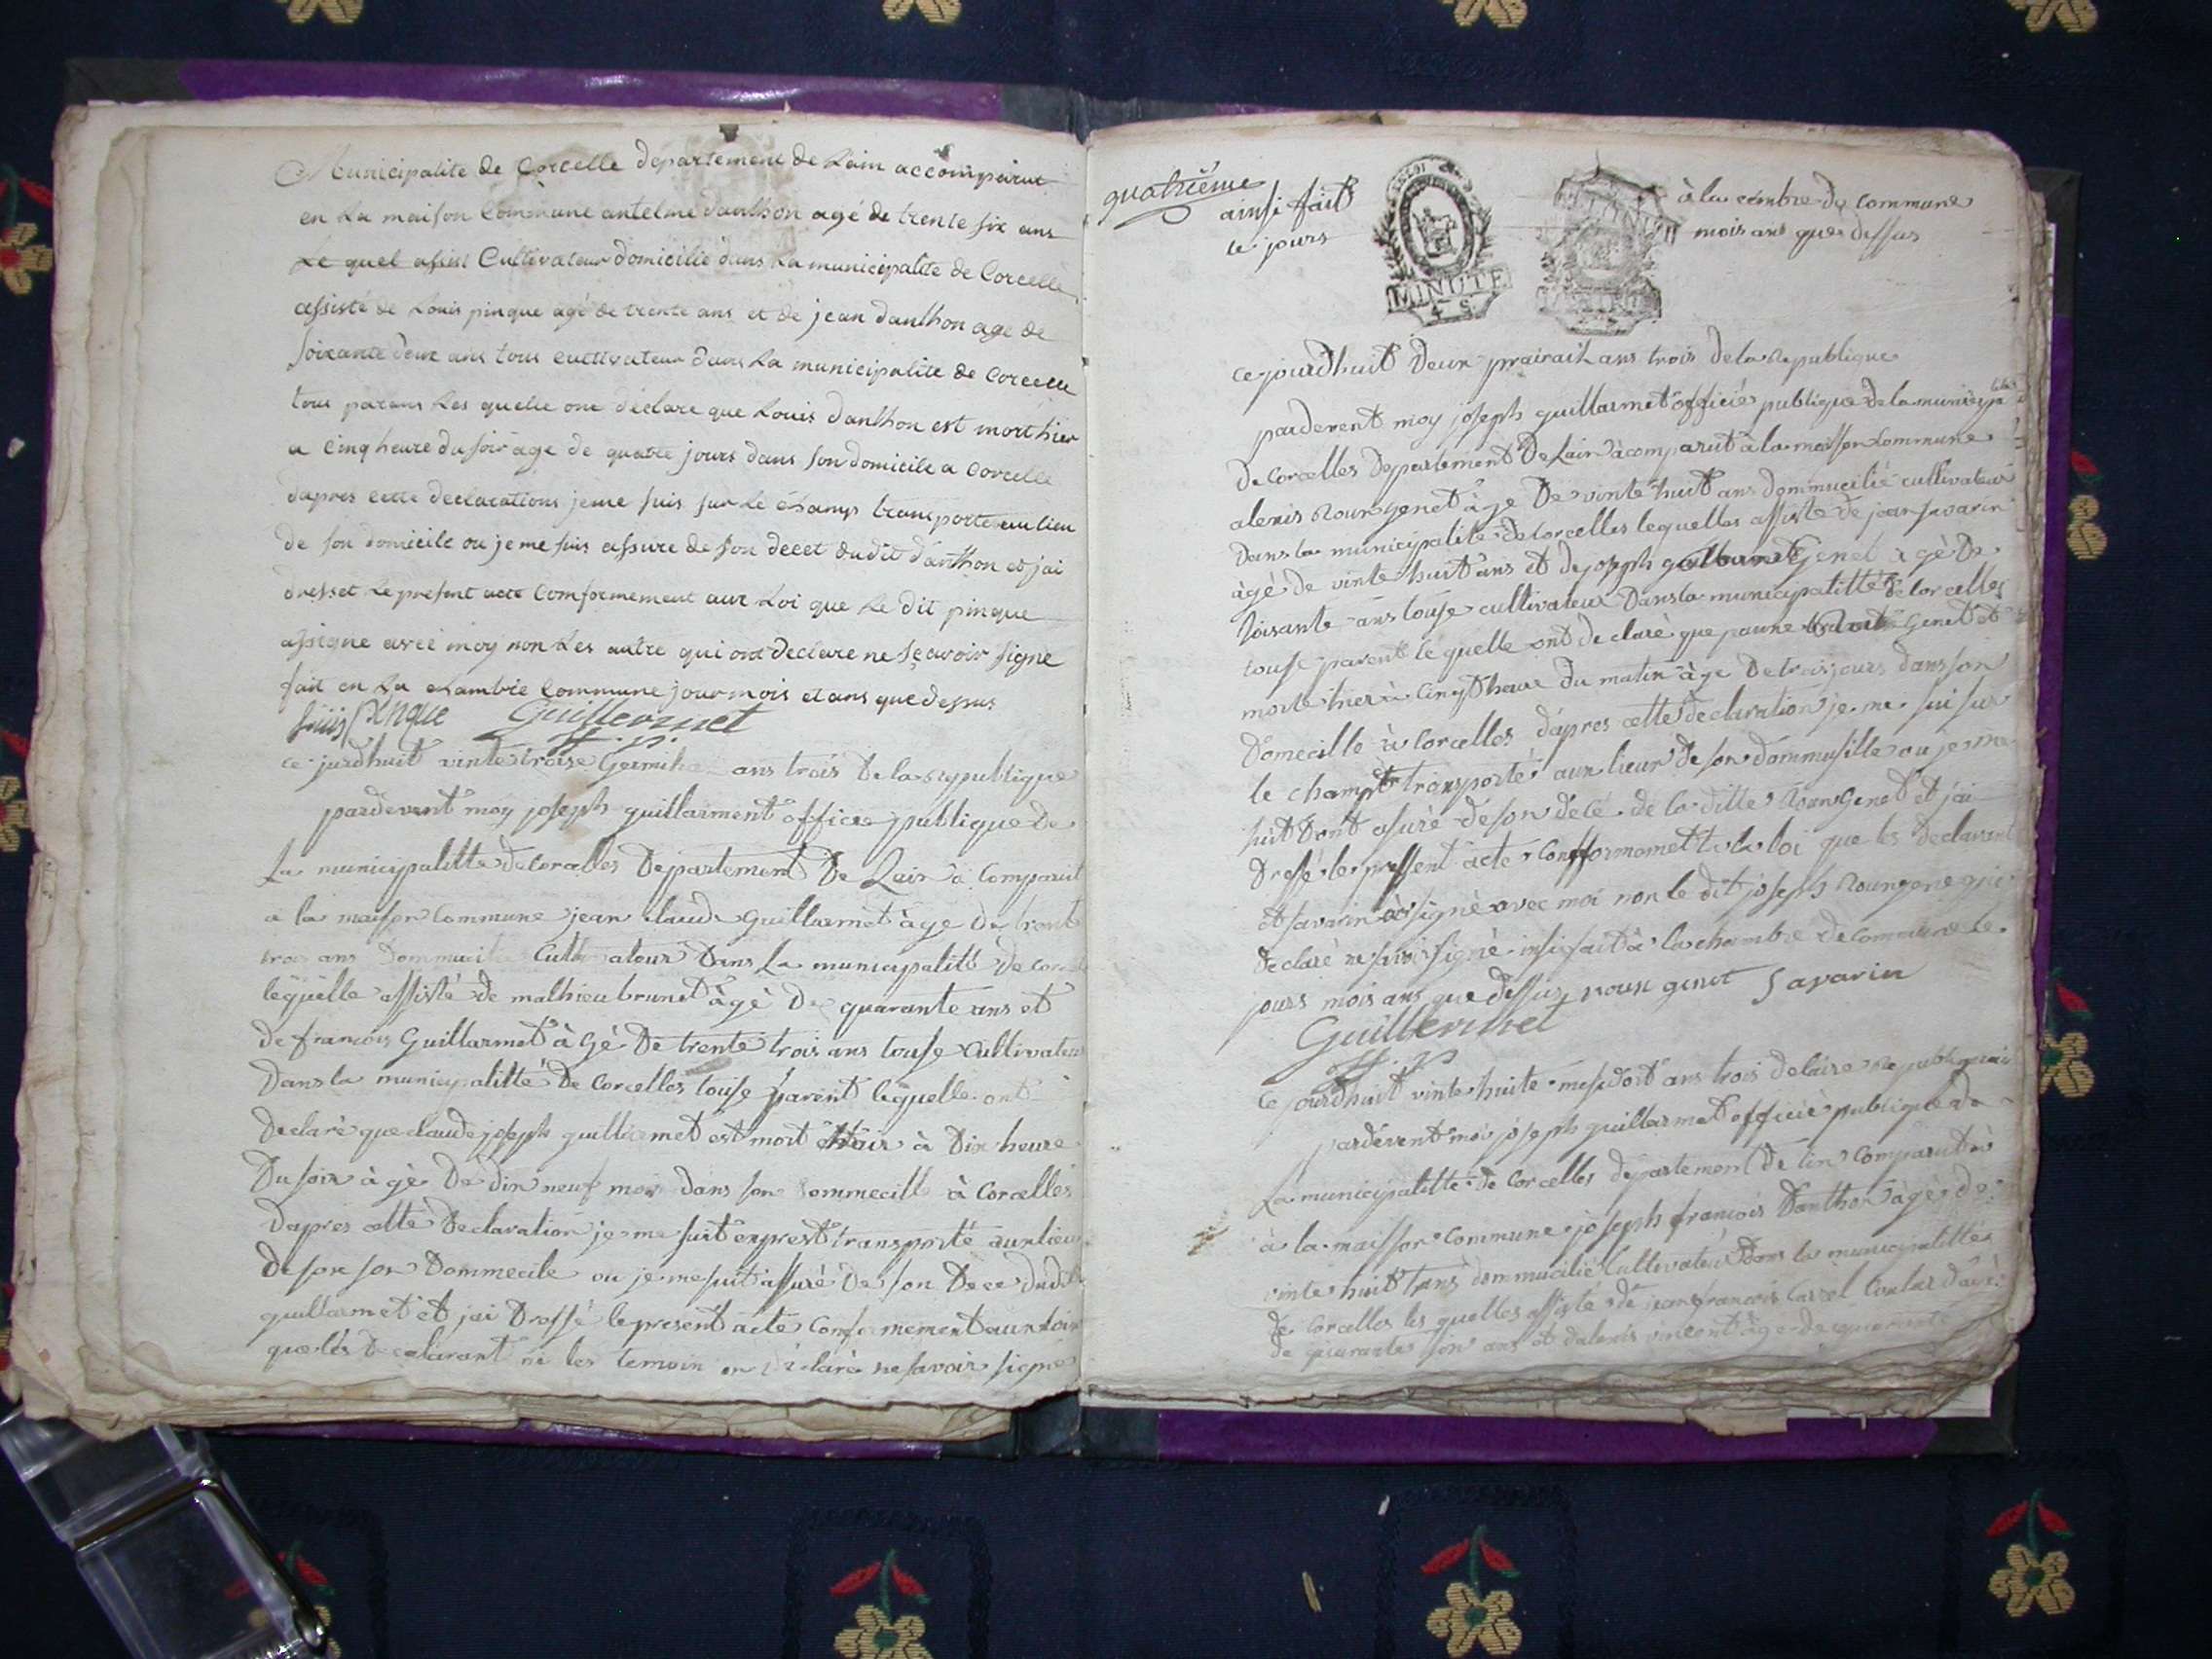 Municipalite de Corcelle departement de Lain accomparut
en La maison Commune antelme danthon agé de trente six ans
Le quel assist Cultivateur domicilié dans La municipalite de Corcelle
assisté de Louis pinque agé de trente ans et de jean danthon age de
soixante deux ans tous cultivateur dans La municipalite de Corcelle
tous parans Les quelle ont déclare que Louis danthon est mort hier
a cinq heure du soir age de quatre jours dans son domicile a Corcelle
dapres cette declarations je me suis sur Le champ transporte au lieu
de son domicile ou je me suis assure de son decet dudit danthon et jai
dresset Le present acte Comformement aux Loi que Le dit pinque
assigne avec moy non Les autre qui ont declare ne sçavoir signe
fait en La chambre Commune jour mois et ans que dessus
Louis pinque Guillermet
ce jurdhuit vinte troise Germinal ans trois de la republique
pardevent moy joseph guillarment officie publique de
La municipalitte de Corcelles Departement De Lain à Comparut
a la maison Commune jean claude Guillarmet àge De trente
trois ans Dommucilie Cultivateur Dans La municipalitté de Corcelle
lequelle assisté de mathieu brunet àgè De quarante ans et
de francois Guillarmet à gè De trente trois ans touse cultivateur
Dans la municipalitté De Corcelles touse parent lequelle ont
Declarè que claude joseph guillarmet est mort hiair à Dix heure
Du soir à gè De dix neuf mois dans son dommecille à Corcelles
Dapres cette Declaration je me suit transporté aux lieu
De son son Dommecile ou je me suit assuré De son Decé Dudit
guillarmet et jai Dressé le present acte Conformement aux loix
que les Decalarant ni les temoin on déclaré ne savoir signé
quatrième
ainsi fait à la cembre de commune
le jours mois ans que dessus
MINUTE
4 S.
ce jourdhuit Deux prairail ans trois de la republique
pardevent moy joseph guillarmet officié publique de la municipalité
de Corcelles Departement De Lain à comparut à la maison Commune
alexis Roux genet àge De vinte huit ans dommucilié cultivateur
Dans la municipalité de Corcelles lequelles assisté de jean savarin
àgé de vinte huit ans et de joseph Genet à gè De
soisante ans touse cultivateur Dans la municipalitté de Corcelles
touse parent lequelle ont declaré que Genet et
morte hier à Cinqt heure du matin àge De trois jours dans son
Domecille à Corcelles dapres cette declaration je me sui sur
le champt transporté aux lieux de son dommusille ou je me
suit Dont asuré de son décé de la ditte Roux Genet et jai
Dressé le pressent acte Conformomett a la loi que les Declarant
et savarin signè avec moi non le dit joseph Rouxgenet qui
declaré ne savoir signè insi fait à la chambre de commune le
jours mois ans que dessus roux genet Savarin
Guillermet
Ce jourdhuit vinte huite mesidort ans trois de laire republiquai
pardevent moi joseph guillarmet officié publique de
La municipalitté de Corcelles departement De lin comparut
à la maisson Commune joseph francois Danthon àgè de
vinte huit ans dommucilié Cultivateur Dans la municipalittés
de Corcelles les quelles assisté de jean francois
de quarante six ans et dalexis vincent àge de quarante